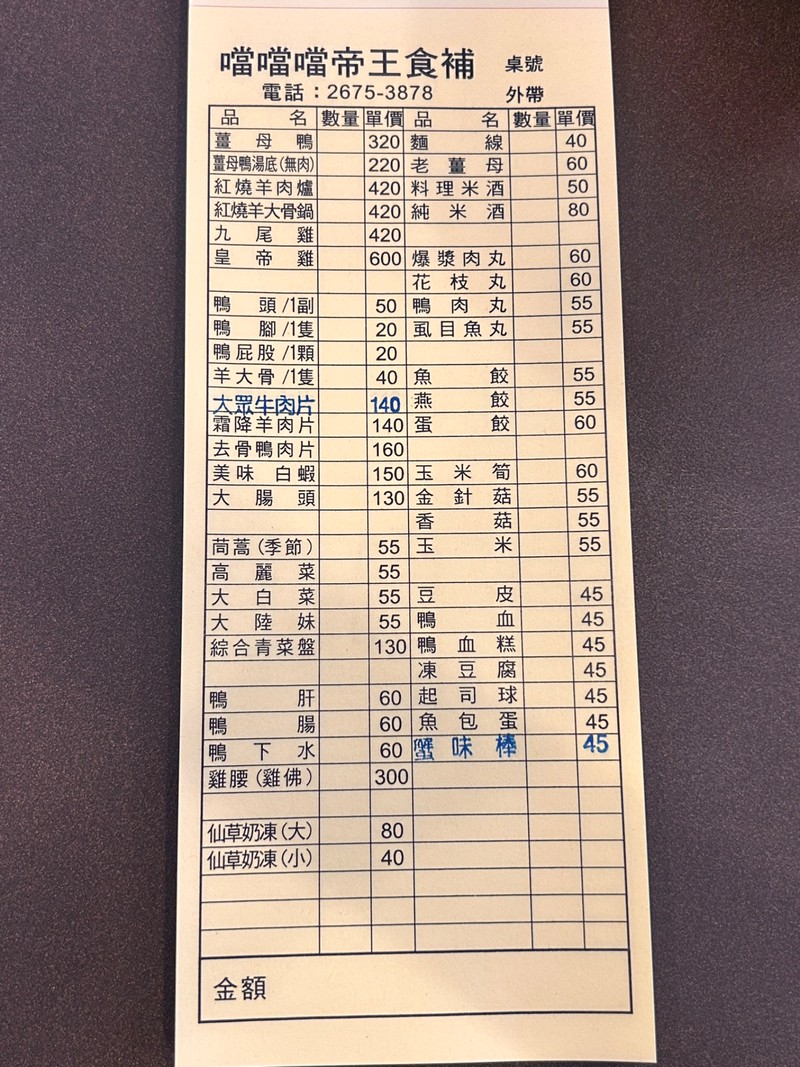 噹噹噹帝王食補 桌號
電話：2675-3878 外帶
品名 數量 單價 品名 數量 單價
薑母鴨 320 麵線 40
薑母鴨湯底(無肉) 220 老薑母 60
紅燒羊肉爐 420 料理米酒 50
紅燒羊大骨鍋 420 純米酒 80
九尾雞 420
皇帝雞 600 爆漿肉丸 60
花枝丸 60
鴨頭/1副 50 鴨肉丸 55
鴨腳/1隻 20 虱目魚丸 55
鴨屁股/1顆 20
羊大骨/1隻 40 魚餃 55
大眾牛肉片 140 燕餃 55
霜降羊肉片 140 蛋餃 60
去骨鴨肉片 160
美味白蝦 150 玉米筍 60
大腸頭 130 金針菇 55
香菇 55
茼蒿(季節) 55 玉米 55
高麗菜 55
大白菜 55 豆皮 45
大陸妹 55 鴨血 45
綜合青菜盤 130 鴨血糕 45
凍豆腐 45
鴨肝 60 起司球 45
鴨腸 60 魚包蛋 45
鴨下水 60 蟹味棒 45
雞腰(雞佛) 300
仙草奶凍(大) 80
仙草奶凍(小) 40
金額